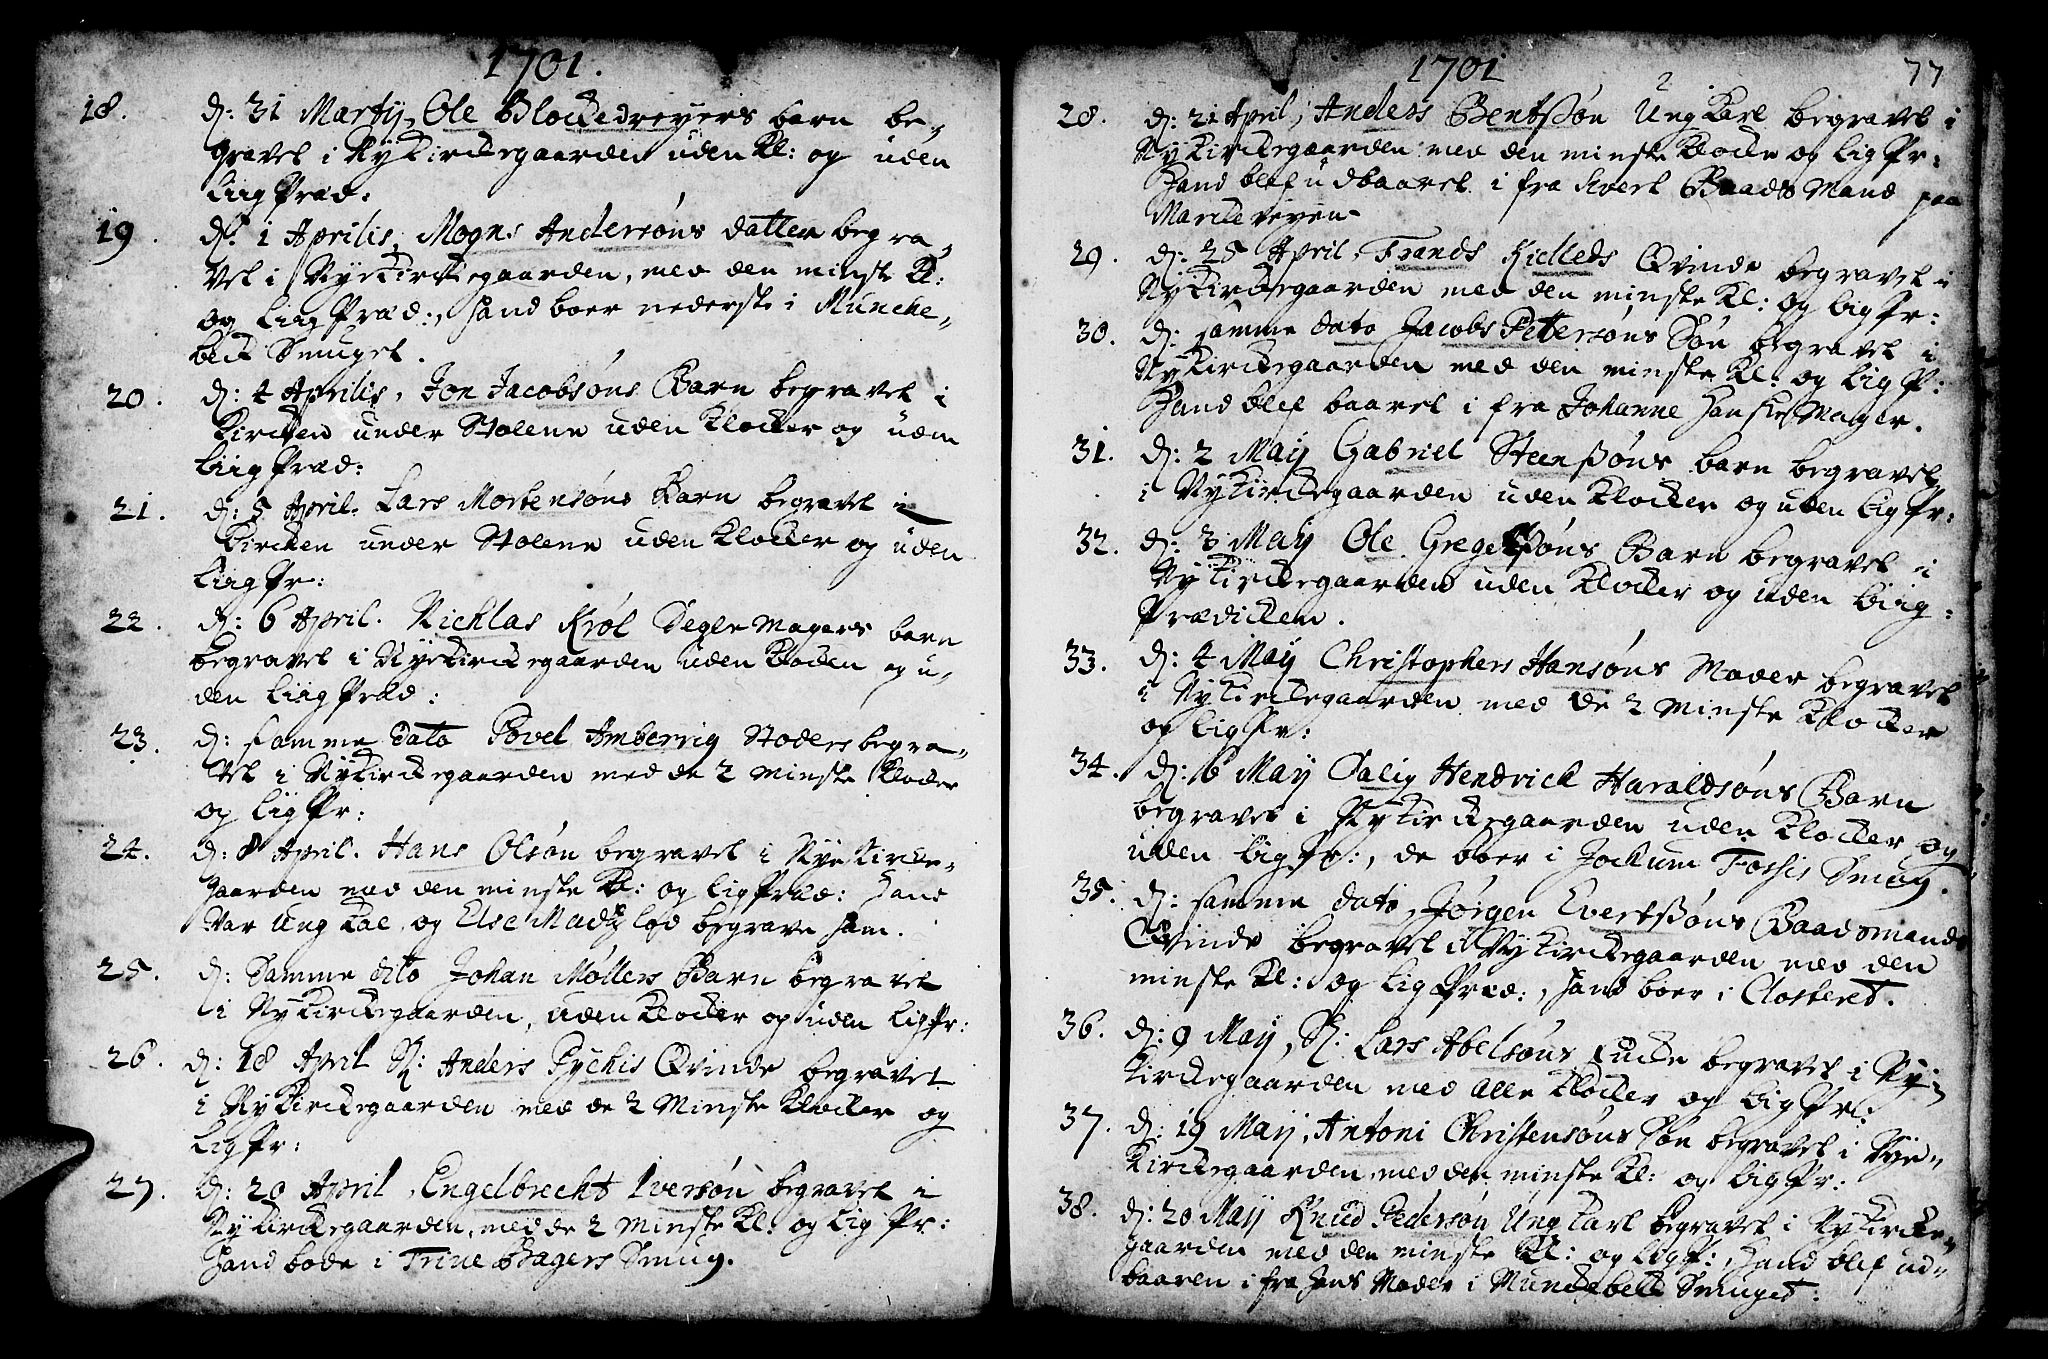 1701.
18. d: 31 Martij, Ole Blockedreyers barn be-
gravet i Nykirckegaarden uden Kl: og uden
Liig Præd:
19. d: 1 Aprilis, Mogns Andersøns datter begra-
vet i Nyekirckegaarden, med den minste Kl:
og Liig Præd:, hand boer nederste i Muncke-
beck Smuget.
20. d: 4 Aprilis, Jon Jacobsøns Barn begravet i
Kircken under Stolene uden Klocker og uden
Liig Præd:
21. d: 5 April. Lars Mortensøns Barn begravet i
Kircken under Stolene uden Klocker og uden
Liig Pr:
22. d: 6 April. Nichlas Krøl Deglemagers barn
begravet i Nyekirckegaarden uden Klocken og u-
den Liig Præd:
23. d: samme dato Povel Amberrig Stoders begra-
vet i Nykirckegaarden med de 2 minste Klocker
og Lig Pr:
24. d: 8 April. Hans Olsøn begravet i Nyekircke-
gaarden med den minste Kl: og Lig Præd: hand
var Ung Kal, og Else Madz lod begrave ham.
25. d: Samme dito Johan Møllers Barn begravet
i Nykirckegaarden, uden Klocker og uden Lig Pr:
26. d: 18 April Sl: Anders Pychis Qvinde begravet
i Nykirckegaarden med de 2 Minste Klocker og
Lig Pr:
27. d: 20 April, Engelbrecht Iversøn begravet i
Nykirckegaarden, med de 2 Minste Kl: og Lig Pr:
hand bode i Trine Bagers Smug.
1701
77
28. d: 21 April, Anders Bentssøn Ung Karl begravet i
Nykirckegaarden med den minste Klocke og Lig Pr:
Hand blef udbaaret i fra Baads Mand paa
Marckeveyen
29. d: 25 April, Frands Kielleds Qvinde begravet i
Nykirckegaarden med den minste Kl: og Lig Pr:
30. d: samme dato Jacobs Petersøns Søn begravet i
Nykirckegaarden med den minste Kl: og Lig P:
Hand blef baaret i fra Johanne Hanske Mager.
31. d: 2 Maij Gabriel Steenssøns barn begravet
i Nykirckegaarden uden Klocker og uden Lig Pr:
32. d: 3 Maij Ole Gregerssøns Barn begravet i
Nykirckegaarden uden Klocker og uden Liig:
Prædicken.
33. d: 4 Maij Christophers Hansøns Moder begravet
i Nykirckegaarden med de 2 Minste Klocker
og Lig Pr:
34. d: 6 Maij Salig Hendrick Haraldsøns Barn
begravet i Nykirckegaarden uden Klocker og
uden Lig Pr:, de boer i Jochum Foshis Smug.
35. d: samme dato, Jørgen Evertssøns Baadsmands
Qvinde begravet i Nykirckegaarden med den
minste Kl: og Lig Præd:, hand boer i Closteret.
36. d: 9 Maij, Sl: Lars Abelsøns Encke begravet i Ny-
kirckegaarden med alle Klocker og Lig Pr:
37. d: 19 Maij, Antoni Christensøns Søn begravet i Nye-
kirckegaarden, med den minste Kl: og Lig Pr:
38. d: 20 Maij Knud Pedersøn Ung Karl begravet i Nykircke-
gaarden med den minste Kl: og Lig P:, hand blef ud-
baaren i fra hans Moder i Munckebeck Smuget.